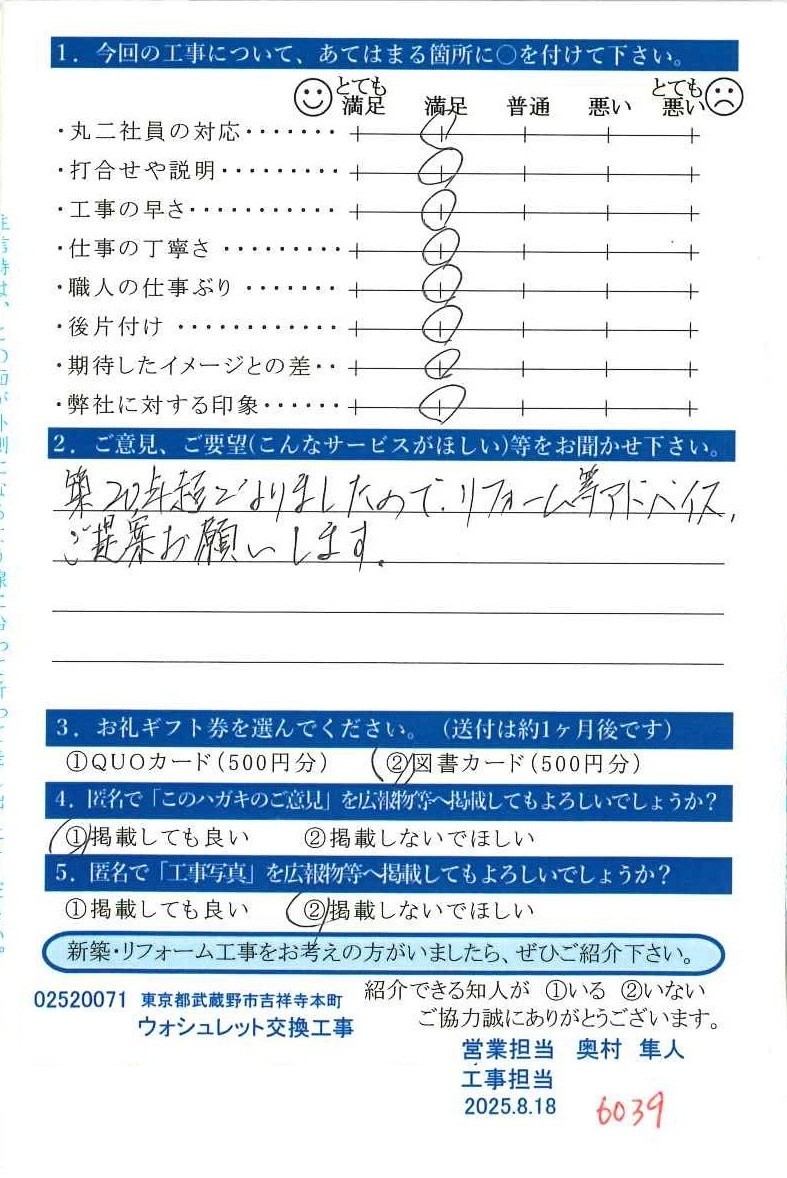 1．今回の工事について、あてはまる箇所に○を付けて下さい。
とても満足 満足 普通 悪い とても悪い
・丸二社員の対応・・・・・・・
・打合せや説明・・・・・・・・・
・工事の早さ・・・・・・・・・・・
・仕事の丁寧さ ・・・・・・・・・
・職人の仕事ぶり ・・・・・・・
・後片付け ・・・・・・・・・・・・
・期待したイメージとの差・・
・弊社に対する印象・・・・・・
2．ご意見、ご要望(こんなサービスがほしい)等をお聞かせ下さい。
築20年超になりましたので、リフォーム等アドバイス、
ご提案お願いします。
3．お礼ギフト券を選んでください。（送付は約1ヶ月後です）
①QUOカード(500円分) ②図書カード(500円分)
4．匿名で「このハガキのご意見」を広報物等へ掲載してもよろしいでしょうか?
①掲載しても良い ②掲載しないでほしい
5．匿名で「工事写真」を広報物等へ掲載してもよろしいでしょうか?
①掲載しても良い ②掲載しないでほしい
新築・リフォーム工事をお考えの方がいましたら、ぜひご紹介下さい。
紹介できる知人が ①いる ②いない
02520071 東京都武蔵野市吉祥寺本町
ご協力誠にありがとうございます。
ウォシュレット交換工事
営業担当 奥村 隼人
工事担当
2025.8.18
6039